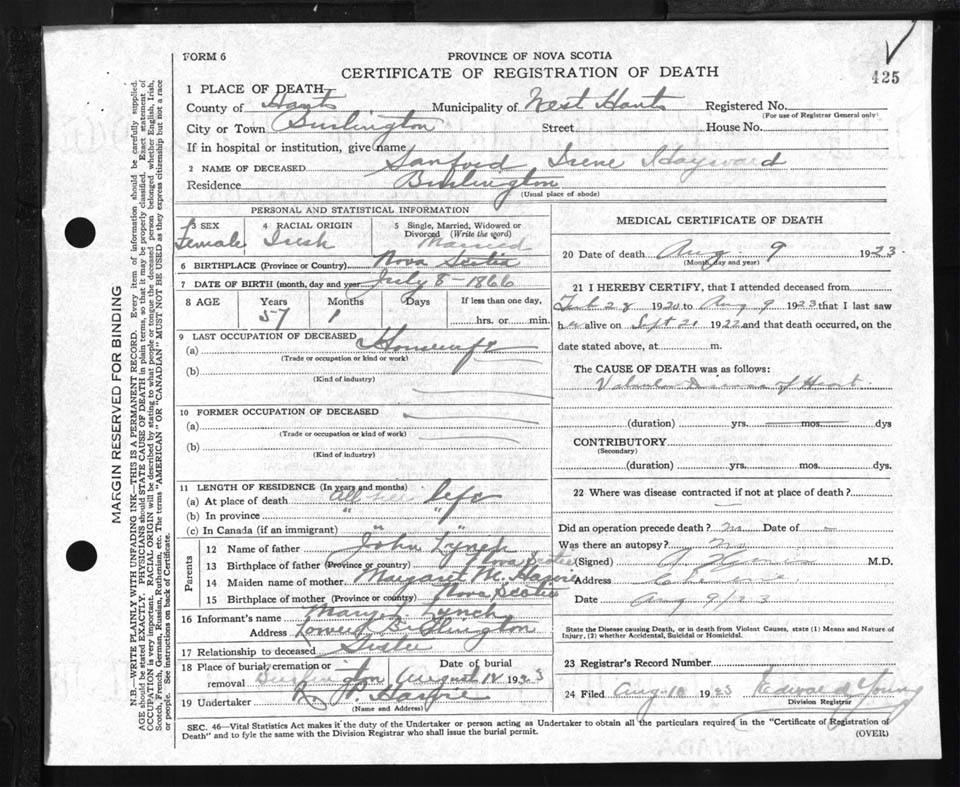 FORM 6
PROVINCE OF NOVA SCOTIA
CERTIFICATE OF REGISTRATION OF DEATH
425
1 PLACE OF DEATH
County of Hants Municipality of West Hants Registered No.
(For use of Registrar General only)
City or Town Burlington Street House No.
If in hospital or institution, give name
2 NAME OF DECEASED Sanford Irene Hayward
Residence Burlington
(Usual place of abode)
PERSONAL AND STATISTICAL INFORMATION
3 SEX Female
4 RACIAL ORIGIN Irish
5 Single, Married, Widowed or Divorced (Write the word) Married
6 BIRTHPLACE (Province or Country) Nova Scotia
7 DATE OF BIRTH (month, day and year) July 8 - 1866
8 AGE Years Months Days If less than one day,
57 1 hrs. or min.
9 LAST OCCUPATION OF DECEASED Housewife
(a)
(Trade or occupation or kind or work)
(b)
(Kind of industry)
10 FORMER OCCUPATION OF DECEASED
(a)
(Trade or occupation or kind of work)
(b)
(Kind of industry)
11 LENGTH OF RESIDENCE (In years and months)
(a) At place of death All her life
(b) In province " "
(c) In Canada (if an immigrant) " "
Parents
12 Name of father John Lynch
13 Birthplace of father (Province or country) Nova Scotia
14 Maiden name of mother Margaret M.
15 Birthplace of mother (Province or country) Nova Scotia
16 Informant's name Mary L Lynch
Address Lower Burlington
17 Relationship to deceased Sister
18 Place of burial, cremation or removal Burlington Date of burial August 1923
19 Undertaker
(Name and Address)
MEDICAL CERTIFICATE OF DEATH
20 Date of death Aug 9 1923
(Month, day and year)
21 I HEREBY CERTIFY, that I attended deceased from
Feb 28 1920 to Aug 9 1923 that I last saw
her alive on Sept 21 1922 and that death occurred, on the
date stated above, at m.
The CAUSE OF DEATH was as follows:
Valvular Disease of Heart
(duration) yrs. mos. dys
CONTRIBUTORY
(Secondary)
(duration) yrs. mos. dys.
22 Where was disease contracted if not at place of death?
Did an operation precede death? No Date of -
Was there an autopsy? No
(Signed) M.D.
Address
Date Aug 9/23
State the Disease causing Death, or in death from Violent Causes, state (1) Means and Nature of
Injury, (2) whether Accidental, Suicidal or Homicidal.
23 Registrar's Record Number
24 Filed Aug 18 1923 Edward Young
Division Registrar
SEC. 46—Vital Statistics Act makes it the duty of the Undertaker or person acting as Undertaker to obtain all the particulars required in the "Certificate of Registration of
Death" and to fyle the same with the Division Registrar who shall issue the burial permit.
(OVER)
MARGIN RESERVED FOR BINDING
N.B.—WRITE PLAINLY WITH UNFADING INK—THIS IS A PERMANENT RECORD. Every item of information should be carefully supplied.
AGE should be stated EXACTLY. PHYSICIANS should STATE CAUSE OF DEATH in plain terms, so that it may be properly classified. Exact statement of
OCCUPATION is very important. RACIAL ORIGIN will be described by stating to what people or tongue the deceased person belonged whether English, Irish,
Scotch, French, German, Russian, Ruthenian, etc. The terms "AMERICAN" OR "CANADIAN" MUST NOT BE USED as they express citizenship but not a race
or people. See instructions on back of Certificate.